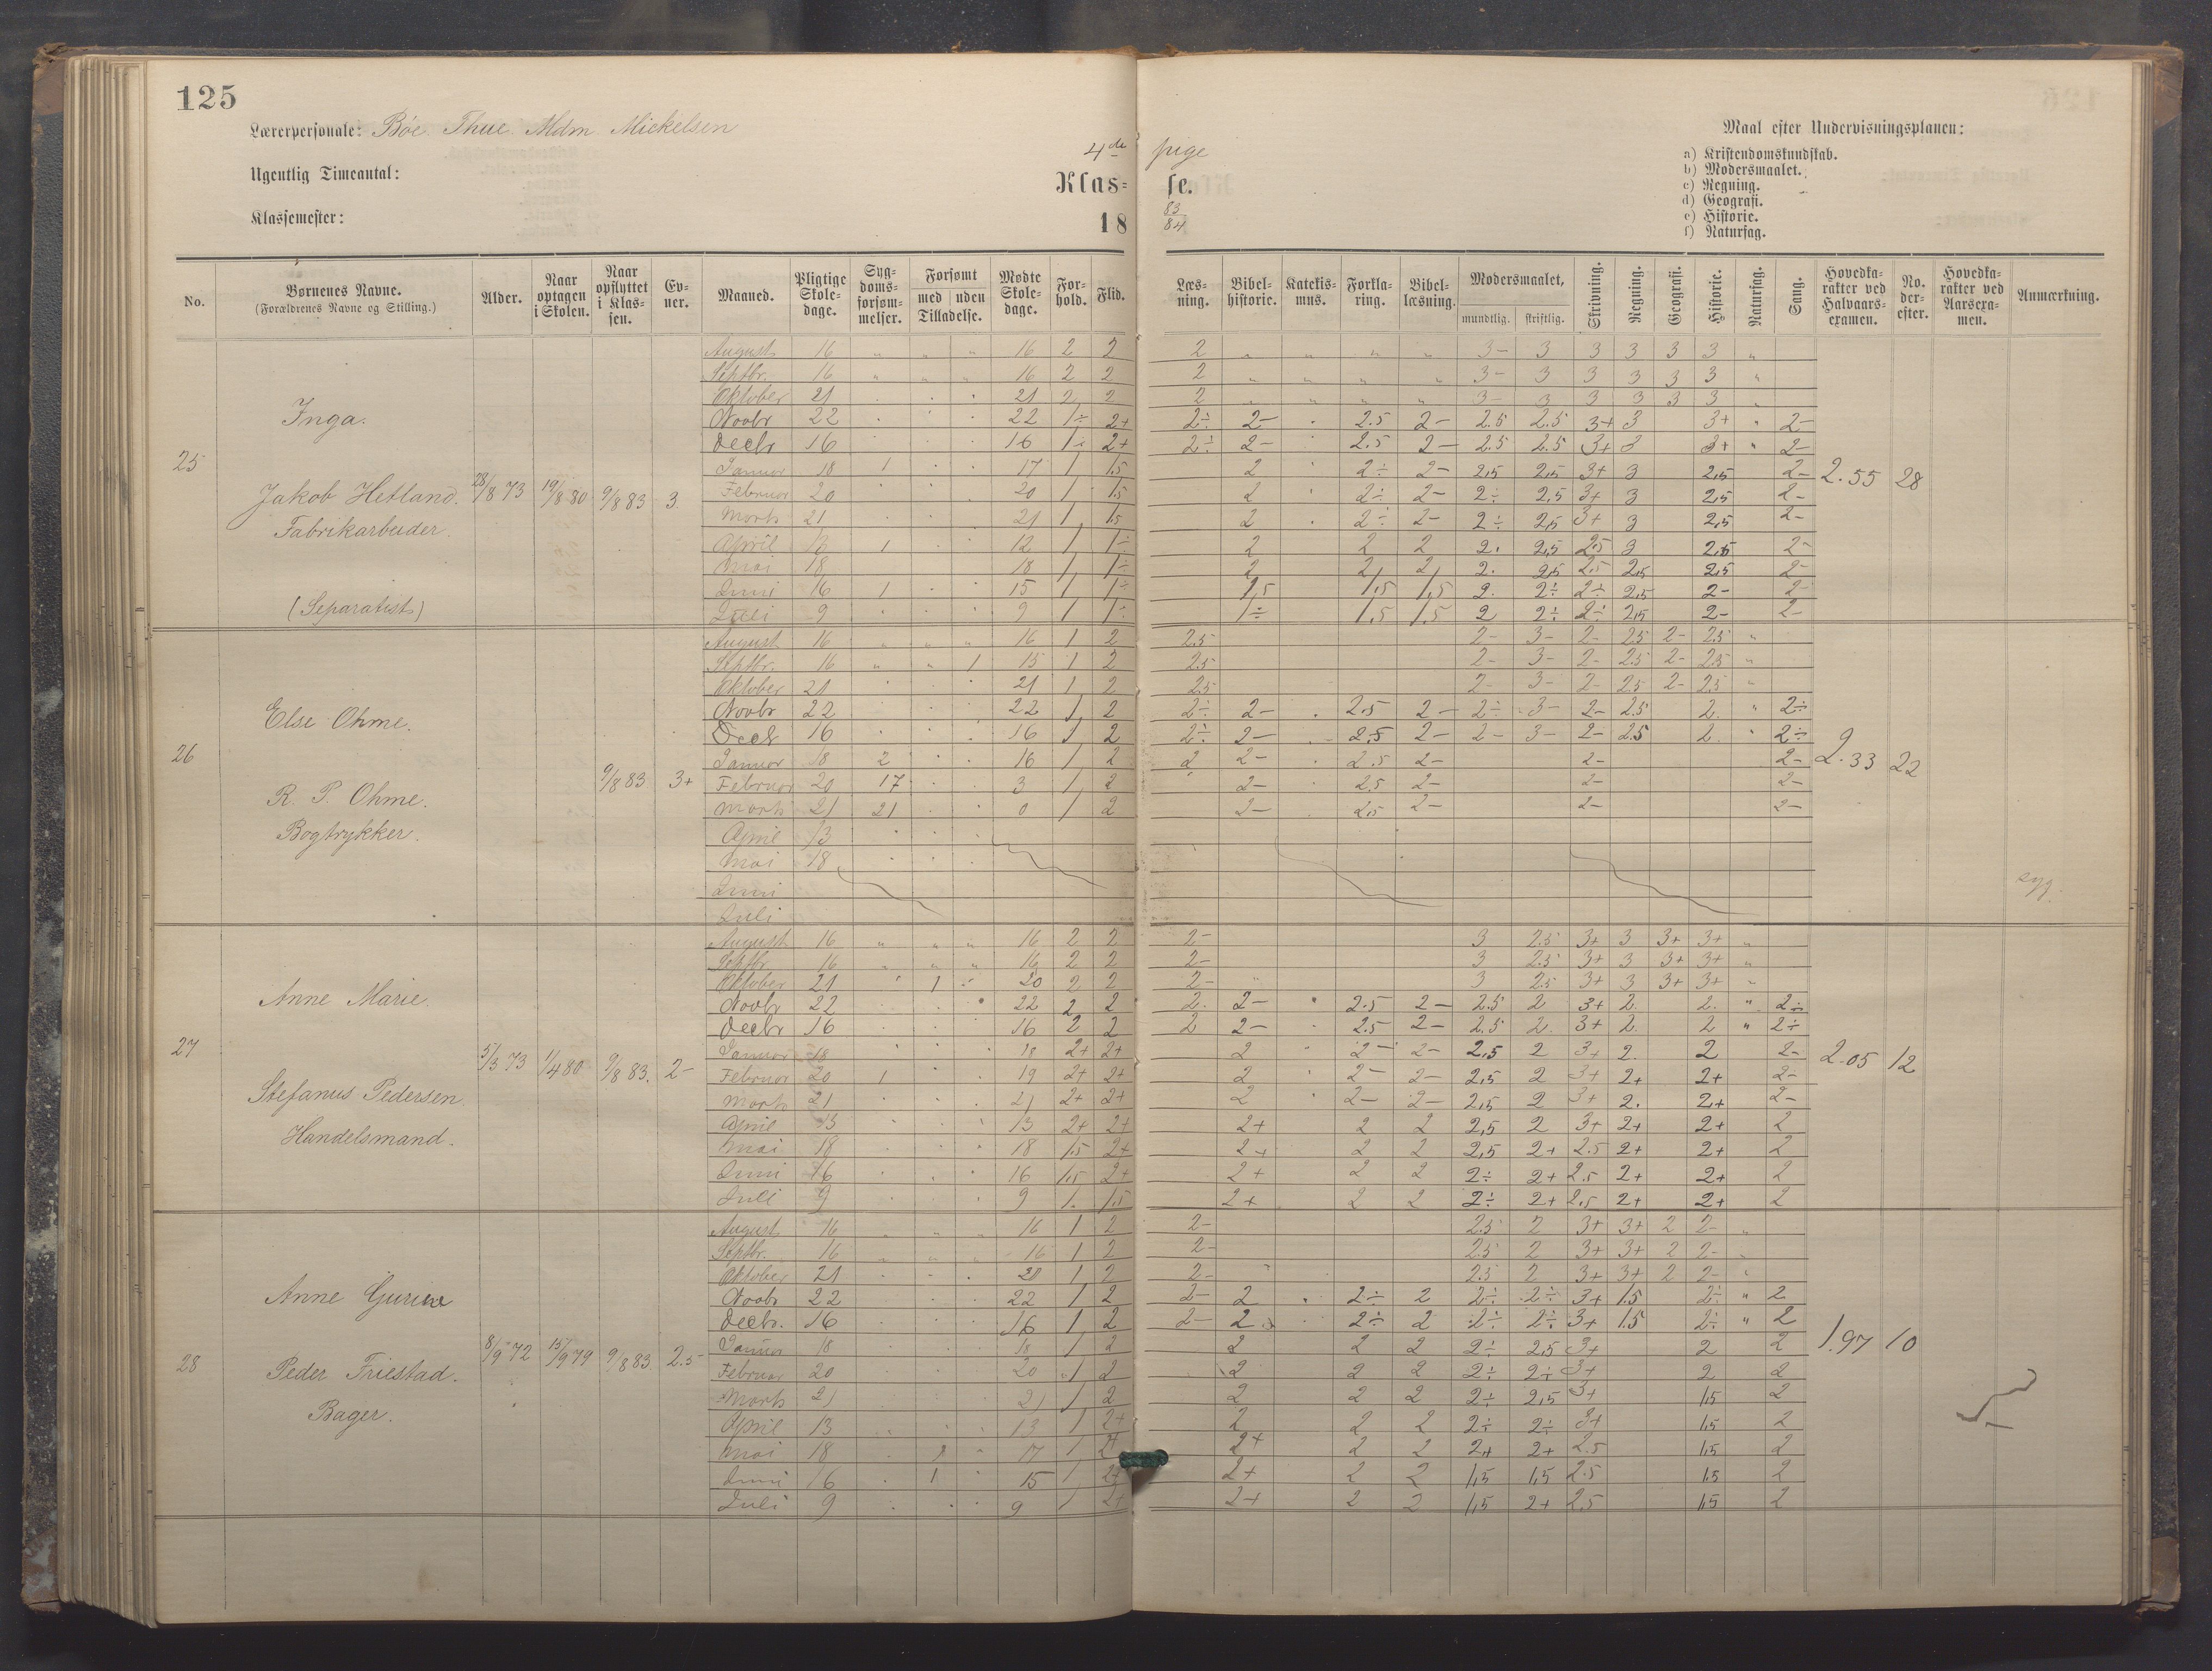 125
Lærerpersonale: Bóe. Thue. Mdm Mickelsen
Ugentlig Timeantal:
Klassemester:
4de pige
Klas= se.
18 83/84
Maal efter Undervisningsplanen:
a) Kristendomskundskab.
b) Modersmaalet.
c) Regning.
d) Geografi.
e) Historie.
f) Naturfag.
No. Børnenes Navne. (Forældrenes Navne og Stilling.) Alder. Naar optagen i Skolen. Naar opflyttet i Klassen. Evner. Maaned. Pligtige Skoledage. Sygdomsforsømmelser. Forsømt med uden Tilladelse. Mødte Skoledage. Forhold. Flid. Læsning. Bibelhistorie. Katekismus. Forklaring. Bibellæsning. Modersmaalet, mundtlig. skriftlig. Skrivning. Regning. Geografi. Historie. Naturfag. Sang. Hovedkarakter ved Halvaarsexamen. No. derefter. Hovedkarakter ved Aarsexamen. Anmærkning.
25 Inga.
Jakob Hetland.
Fabrikarbeider.
(Separatist)
28/8 73 19/8 80 9/8 83 3. 2.55 28
August 16 " " " 16 2 2 2 " " " " 3- 3 3 3 3 3 "
Septbr. 16 " " " 16 2 2 2 " " " " 3- 3 3 3 3 3 "
Oktober 21 . . . 21 2 2 2 " " " " 3- 3 3 3 3 3 "
Novbr 22 . . . 22 1÷ 2+ 2÷ 2- . 2.5 2- 2.5 2.5 3+ 3 3+ " 2-
Decbr 16 . . . 16 1÷ 2+ 2÷ 2- . 2.5 2- 2.5 2.5 3+ 3 3+ " 2-
Januar 18 1 . . 17 1 1.5 2 . 2÷ 2- 2,5 2,5 3+ 3 2,5 2-
Februar 20 . . . 20 1 1.5 2 . 2÷ 2- 2÷ 2,5 3+ 3 2,5 2-
Marts 21 . . 21 1 1.5 2 . 2÷ 2- 2÷ 2,5 3+ 3 2,5 2-
April 13 1 . . 12 1 1÷ 2 2 2 2. 2,5 2.5 3 2,5 2-
Mai 18 . . 18 1 1÷ 2 2 2 2. 2,5 2,5 2,5 2,5 2-
Juni 16 1 . . 15 1 1÷ 1,5 1,5 1,5 2. 2÷ 2÷ 2,5 2- 2-
Juli 9 . . . 9 1 1÷ 1÷ 1.5 1.5 2 2÷ 2÷ 2,5 2- 2-
26 Else Ohme.
R. P. Ohme.
Bogtrykker.
9/8 83 3+ 2.33 22
syg.
August 16 " " " 16 1 2 2.5 2- 3- 2- 2.5 2- 2.5 "
Septbr. 16 " " 1 15 1 2 2.5 2- 3- 2- 2.5 2- 2.5 "
Oktober 21 . . . 21 1 2 2.5 2- 3- 2- 2.5 2- 2.5 "
Novbr 22 . . . 22 1 2 2÷ 2- . 2.5 2- 2÷ 3- 2- 2.5 2. " 2÷
Decbr 16 . . . 16 1 2 2÷ 2- 2.5 2- 2- 3- 2- 2.5 2. " 2÷
Januar 18 2 . . 16 1 2 2 2- . 2.5 2- 2- 2-
Februar 20 17 . . 3 1 2 2- . 2.5 2- 2- 2-
Marts 21 21 . . 0 1 2 2- 2.5 2- 2- 2-
April 13
Mai 18
Juni
Juli
27 Anne Marie.
Stefanus Pedersen.
Handelsmand.
5/3 73 1/4 80 9/8 83. 2- 2.05 12
August 16 " " " 16 2 2 2- 3 2.5 3+ 3 3+ 3+ "
Septbr 16 " " " 16 2 2 2- 3 2.5 3+ 3 3+ 3+ "
Oktober 21 . 1 . 20 2 2 2- 3 2.5 3+ 3 3+ 3+ "
Novbr 22 . . . 22 2 2 2. 2- . 2.5 2- 2.5 2 3+ 2. 2. " 2÷
Decbr 16 . . . 16 2 2 2 2- . 2.5 2- 2.5 2. 3+ 2. 2 " 2÷
Januar 18 . . . 18 2+ 2+ 2 . 2- 2- 2,5 2 3+ 2. 2 2-
Februar 20 1 . . 19 2+ 2+ 2 2- 2- 2,5 2 3+ 2+ 2+ 2-
Marts 21 . . . 21 2+ 2+ 2 . 2- 2- 2,5 2 3+ 2. 2+ 2-
April 13 . . . 13 2+ 2+ 2+ 2 2 2,5 2 3+ 2+ 2+ 2
Mai 18 . . . 18 1.5 2+ 2+ 2 2 2,5 2+ 2.5 2+ 2+ 2
Juni 16 . . . 16 1.5 2+ 2+ 2 2 2÷ 2+ 2.5 2+ 2+ 2
Juli 9 . . . 9 1. 1.5 2+ 2 2 2÷ 2+ 2,5 2+ 2+ 2
28 Anne Gurine
Peder Friestad.
Bager.
8/9 72 15/9 79 9/8 83. 2.5- 1.97 10
August 16 " " " 16 1 2 2- 2.5 2 3+ 3+ 2 2- "
Septbr. 16 " " " 16 1 2 2- 2.5 2 3+ 3+ 2 2- "
Oktober 21 . . . 1 2 2- 2.5 2 3+ 3+ 2 2- "
Novbr 22 . . . 22 1 2 2- 2 . 2÷ 2 2÷ 2÷ 3+ 1.5 2÷ " 2
Decbr. 16 . . . 16 1 2 2- 2 2÷ 2 2÷ 2÷ 3+ 1.5 2÷ " 2
Januar 18 . . . 18 1 2 2 2 2 2÷ 2,5 3+ 2 2
Februar 20 . . . 20 1 2 2 2 2 2÷ 2÷ 3+ 2 2
Marts 21 . . . 21 1 2 2 2 2 2÷ 2,5 3+ 1,5 2
April 13 . . . 13 1 2+ 2 2 2 2÷ 2÷ 3+ 1,5 2
Mai 18 . 1 . 17 1 2+ 2+ 2 2 2+ 2+ 2.5 1,5 2
Juni 16 . 1 . 15 1 2+ 2+ 2 2 1,5 1,5 2.5 1.5 2
Juli 9 . . . 9 1 2+ 2+ 2 2 1,5 2+ 2,5 1,5 2